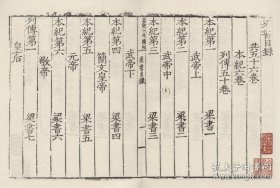 梁書目錄
共五十六卷
本紀六卷
列傳五十卷
本紀第一 梁書一
武帝上
本紀第二 梁書二
武帝中
本紀第三 梁書三
武帝下
本紀第四 梁書四
簡文皇帝
本紀第五 梁書五
元帝
本紀第六 梁書六
敬帝
列傳第一 梁書七
皇后